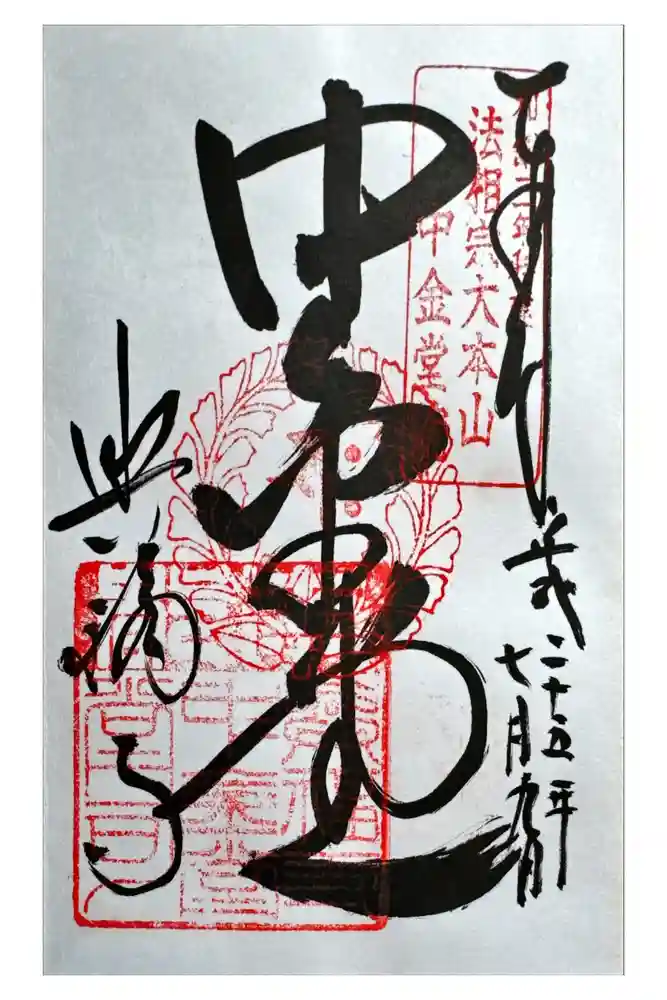 奉拝
平成二十五年
七月九日
法相宗大本山
中金堂
中金堂
興福寺